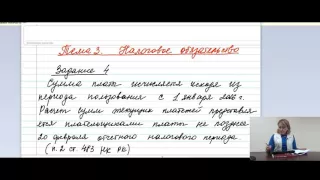 Тема 3. Налоговое обязательство
Задание 4
Сумма плат исчисляется исходя из
периода пользования с 1 января 2016 г.
Расчет сумм текущих платежей представля-
ется плательщиками платы не позднее
20 февраля отчетного налогового периода
(п. 2 ст. 483 НК РК)